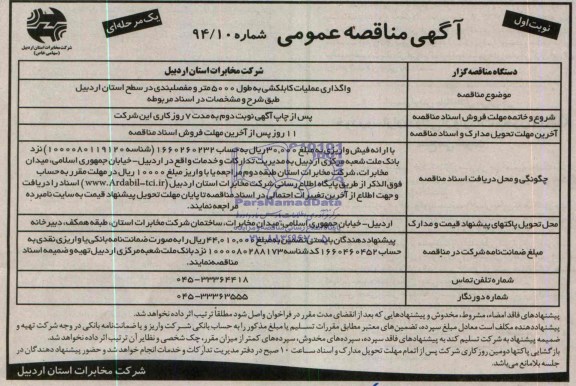 نوبت اول
آگهی مناقصه عمومی شماره ۹۴/۱۰
یک مرحله‌ای
شرکت مخابرات استان اردبیل
(سهامی خاص)
دستگاه مناقصه گزار
شرکت مخابرات استان اردبیل
موضوع مناقصه
واگذاری عملیات کابلکشی به طول ۵۰۰۰ متر و مفصلبندی در سطح استان اردبیل
طبق شرح و مشخصات در اسناد مربوطه
شروع و خاتمه مهلت فروش اسناد مناقصه
پس از چاپ آگهی نوبت دوم به مدت ۷ روز کاری این شرکت
آخرین مهلت تحویل مدارک و اسناد مناقصه
۱۱ روز پس از آخرین مهلت فروش اسناد مناقصه
چگونگی و محل دریافت اسناد مناقصه
با ارائه فیش واریزی به مبلغ ۳۰۰,۰۰۰ ریال به حساب ۱۶۶۰۲۶۰۲۳۲ (شناسه ۱۰۰۰۰۸۰۱۱۹۱۲۰) نزد
بانک ملت شعبه مرکزی اردبیل به مدیریت تدارکات و خدمات واقع در اردبیل- خیابان جمهوری اسلامی، میدان
مخابرات، شرکت مخابرات استان طبقه دوم مراجعه یا با واریز مبلغ ۱۰۰۰۰ ریال در مهلت مقرر به حساب
فوق الذکر از طریق پایگاه اطلاع رسانی شرکت مخابرات استان اردبیل (www.Ardabil-tci.ir) اسناد را دریافت
و جهت اطلاع از آخرین تغییرات احتمالی در اسناد مناقصه تا پایان مهلت تحویل پیشنهاد قیمت به سایت نامبرده
مراجعه نمایند.
ParsNamadData
محل تحویل پاکتهای پیشنهاد قیمت و مدارک
اردبیل- خیابان جمهوری اسلامی، میدان مخابرات، ساختمان شرکت مخابرات استان، طبقه همکف، دبیرخانه
مبلغ ضمانت نامه شرکت در مناقصه
پیشنهاددهندگان بایستی تضمین به مبلغ ۴۴,۰۱۰,۰۰۰ ریال را به صورت ضمانت نامه بانکی یا واریز نقدی به
حساب ۱۶۶۰۴۶۰۴۵۲ کد شناسه ۱۰۰۰۰۸۰۲۸۸۱۷۳ نزد بانک ملت شعبه مرکزی اردبیل تهیه و ضمیمه اسناد
مناقصه نمایند.
شماره تلفن تماس
۰۴۵-۳۳۳۶۴۴۱۸
شماره دورنگار
۰۴۵-۳۳۳۶۳۵۵۵
پیشنهادهای فاقد امضاء، مشروط، مخدوش و پیشنهادهایی که بعد از انقضای مدت مقرر در فراخوان واصل شود مطلقاً ترتیب اثر داده نخواهد شد.
پیشنهاددهنده مکلف است معادل مبلغ سپرده، تضمین های معتبر مطابق مقررات تسلیم یا مبلغ مذکور را به حساب بانکی شرکت واریز و یا ضمانت نامه بانکی در وجه شرکت تهیه و
ضمیمه پیشنهاد به شرکت تسلیم کند به پیشنهادهای فاقد سپرده، سپرده های مخدوش، سپرده های کمتر از میزان مقرر، چک شخصی و نظایر آن ترتیب اثر داده نخواهد شد.
بازگشایی پاکتها دومین روز کاری شرکت پس از اتمام مهلت تحویل مدارک و اسناد ساعت ۱۰ صبح در دفتر مدیریت تدارکات و خدمات انجام خواهد شد و حضور پیشنهاد دهندگان در
جلسه بلامانع می باشد.
شرکت مخابرات استان اردبیل